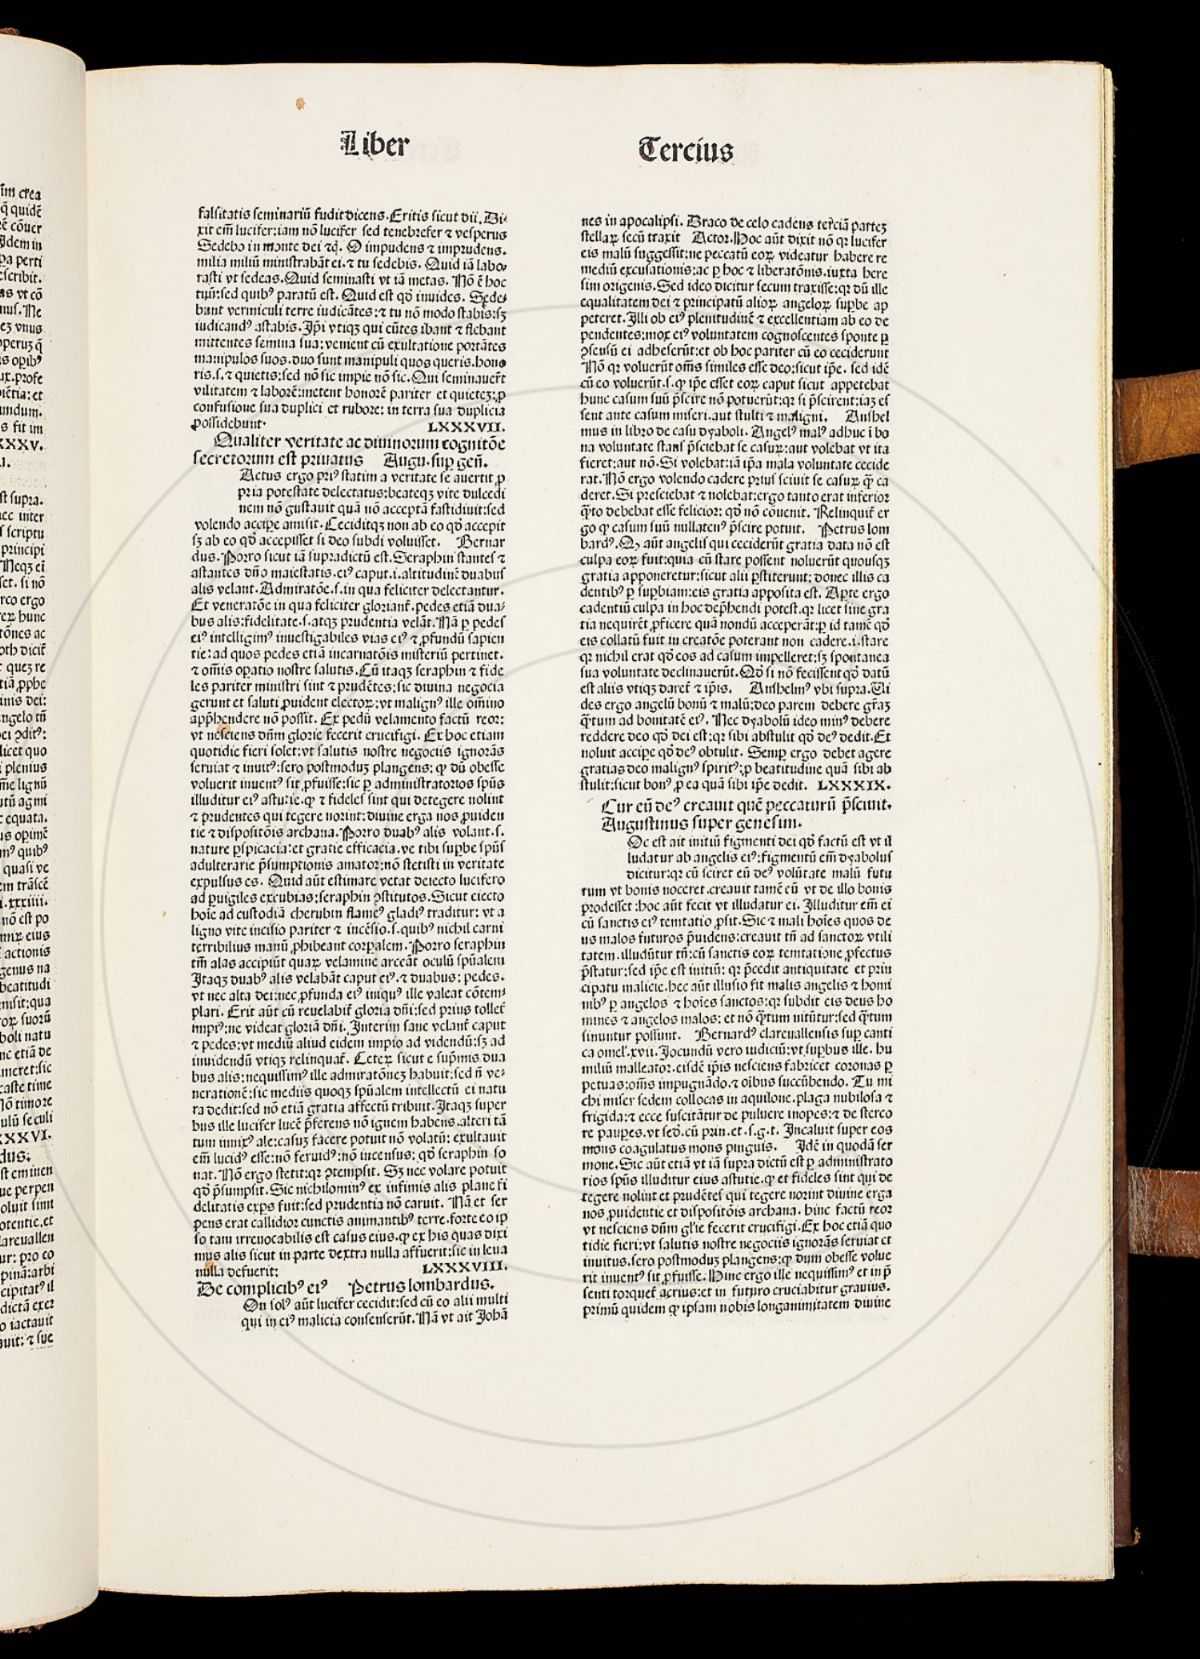 Liber Tercius
falsitatis seminariū fudit dicens. Eritis sicut dii. Di-
xit em̄ lucifer: iam nō lucifer sed tenebrefer ⁊ vesperus
Sedebo in monte dei ⁊q̄. O impudens ⁊ imprudens.
milia miliū ministrabāt ei. ⁊ tu sedebis. Quid iā labo-
rasti vt sedeas. Quid seminasti vt iā metas. Nō ē hoc
tuū: sed quibꝰ paratū est. Quid est qd̄ inuides. Sede-
bunt vermiculi terre iudicātes: ⁊ tu nō modo stabis: sꝫ
iudicandꝰ astabis. Ip̄i vtiqꝫ qui eūtes ibant ⁊ flebant
mittentes semina sua: venient cū exultatione portātes
manipulos suos. duo sunt manipuli quos queris. hono
ris. s. ⁊ quietis: sed nō sic impie nō sic. Qui seminauer̄t
vilitatem ⁊ laborē: metent honorē pariter et quietez: ꝓ
confusione sua duplici et rubore: in terra sua duplicia
possidebunt. LXXXVII.
Qualiter veritate ac diuinorum cognitōe
secretorum est priuatus Augu. sup gen̄.
Actus ergo priꝰ statim a veritate se auertit ꝓ
pria potestate delectatus: beateqꝫ vite dulcedi
nem nō gustauit quā nō acceptā fastidiuit: sed
volendo accipe amisit. Ceciditqꝫ non ab eo qd̄ accepit
sꝫ ab eo qd̄ accepisset si deo subdi voluisset. Bernar
dus. Porro sicut iā supradictū est. Seraphin stantes ⁊
astantes dn̄o maiestatis. eiꝰ caput. i. altitudinē duabus
alis velant. Admiratōe. s. in qua feliciter delectantur.
Et veneratōe in qua feliciter gloriant᷑. pedes etiā dua-
bus alis: fidelitate. s. atqꝫ prudentia velāt. Nā ꝑ pedes
eiꝰ intelligimꝰ inuestigabiles vias eiꝰ ⁊ ꝓfundū sapien
tie: ad quos pedes etiā incarnatōis misteriū pertinet.
⁊ om̄is oꝑatio nostre salutis. Cū itaqꝫ seraphin ⁊ fide
les pariter ministri sint ⁊ prudētes: sic diuina negocia
gerunt et saluti ꝓuident electoꝝ: vt malignꝰ ille om̄ino
app̄hendere nō possit. Ex pedū velamento factū reor:
vt nesciens dn̄m glorie fecerit crucifigi. Ex hoc etiam
quotidie fieri solet: vt salutis nostre negociis ignorās
seruiat ⁊ inuitꝰ: sero postmoduꝫ plangens: ꝙ dū obesse
voluerit inuentꝰ sit ꝓfuisse: sic ꝑ administratorios spūs
illuditur eiꝰ astucie. ꝙ ⁊ fideles sint qui detegere nolint
⁊ prudentes qui tegere norint: diuine erga nos ꝓuiden
tie ⁊ dispositōis archana. Porro duabꝰ alis volant. s.
nature ꝑspicacia: et gratie efficacia. ve tibi supbe spūs
adulterarie p̄sumptionis amator: nō stetisti in veritate
expulsus es. Quid aūt estimare vetat deiecto lucifero
ad ꝑuigiles excubias: seraphin ꝯstitutos. Sicut eiecto
hoīe ad custodiā cherubin flameꝰ gladiꝰ traditur: vt a
ligno vite incisio pariter ⁊ incēsio. s. quibꝰ nichil carni
terribilius manū ꝓhibeant corꝑalem. Porro seraphin
tm̄ alas accipiūt quaꝝ velamine arceāt oculū spūalem
Itaqꝫ duabꝰ alis velabāt caput eiꝰ. ⁊ duabus: pedes.
vt nec alta dei: nec ꝓfunda eiꝰ iniquꝰ ille valeat cōtem-
plari. Erit aūt cū reuelabit᷑ gloria dn̄i: sed prius tollet᷑
impiꝰ: ne videat gloriā dn̄i. Interim sane velant᷑ caput
⁊ pedes: vt mediū aliud eidem impio ad videndū: sꝫ ad
inuidendū vtiqꝫ relinquat᷑. Ceteꝝ sicut e sup̄mis dua
bus alis: nequissimꝰ ille admiratōneꝫ habuit: sed n̄ ve-
nerationē: sic mediis quoqꝫ spūalem intellectū ei natu
ra dedit: sed nō etiā gratia affectū tribuit. Itaqꝫ super
bus ille lucifer lucē p̄ferens nō ignem habens. alteri tā
tum innixꝰ ale: casuꝫ facere potuit nō volatū: exultauit
em̄ lucidꝰ esse: nō feruidꝰ: nō incensus: qd̄ seraphin so
nat. Nō ergo stetit: qꝛ ꝯtempsit. Sꝫ nec volare potuit
qd̄ p̄sumpsit. Sic nichilominꝰ ex infimis alis plane fi
delitatis exꝑs fuit: sed prudentia nō caruit. Nā et ser
pens erat callidior cunctis animantibꝰ terre. forte eo ip
so tam irreuocabilis est casus eius. ꝙ ex his quas dixi
mus alis sicut in parte dextra nulla affuerit: sic in leua
nulla defuerit: LXXXVIII.
De complicibꝰ eiꝰ Petrus lombardus.
On solꝰ aūt lucifer cecidit: sed cū eo alii multi
qui in eiꝰ malicia consenserūt. Nā vt ait Johā
nes in apocalipsi. Draco de celo cadens terciā parteꝫ
stellaꝝ secū traxit Actor. Hoc aūt dixit nō qꝛ lucifer
eis malū suggessit: ne peccatū eoꝝ videatur habere re
mediū excusationis: ac ꝑ hoc ⁊ liberatōnis. iuxta here
sim origenis. Sed ideo dicitur secum traxisse: qꝛ dū ille
equalitatem dei ⁊ principatū alioꝝ angeloꝝ supbe ap
peteret. Illi ob eiꝰ plenitudinē ⁊ excellentiam ab eo de
pendentes: mox eiꝰ voluntatem cognoscentes sponte ꝑ
ꝯsensū ei adheserūt: et ob hoc pariter cū eo ceciderunt
Nō qꝛ voluerūt om̄s similes esse deo: sicut ip̄e. sed idē
cū eo voluerūt. s. ꝙ ip̄e esset eoꝝ caput sicut appetebat
hunc casum suū p̄scire nō potuerūt: qꝛ si p̄scirent: iaꝫ es
sent ante casum miseri. aut stulti ⁊ maligni. Anshel
mus in libro de casu dyaboli. Angelꝰ malꝰ adhuc ī bo
na voluntate stans p̄sciebat se casuꝝ: aut volebat vt ita
fieret: aut nō. Si volebat: iā ip̄a mala voluntate cecide
rat. Nō ergo volendo cadere priꝰ sciuit se casuꝝ ꝙ̄ ca
deret. Si presciebat ⁊ nolebat: ergo tanto erat inferior
q̄to debebat esse felicior: qd̄ nō cōuenit. Relinquit᷑ er
go ꝙ casum suū nullatenꝰ p̄scire potuit. Petrus lom
bardꝰ. Qꝫ aūt angelis qui ceciderūt gratia data nō est
culpa eoꝝ fuit: quia cū stare possent noluerūt quousqꝫ
gratia apponeretur: sicut alii ꝑstiterunt: donec illis ca
dentibꝰ ꝑ supbiam: eis gratia apposita est. Apte ergo
cadentiū culpa in hoc dep̄hendi potest. qꝛ licet sine gra
tia nequirēt ꝓficere quā nondū acceperāt: ꝑ id tamē qd̄
eis collatū fuit in creatōe poterant non cadere. i. stare
qꝛ nichil erat qd̄ eos ad casum impelleret: sꝫ spontanea
sua voluntate declinauerūt. Qd̄ si nō fecissent qd̄ datū
est aliis vtiqꝫ daret᷑ ⁊ ip̄is. Anshelmꝰ vbi supra. Vi
des ergo angelū bonū ⁊ malū: deo parem debere gr̄aꝫ
q̄tum ad bonitatē eiꝰ. Nec dyabolū ideo minꝰ debere
reddere deo qd̄ dei est: qꝛ sibi abstulit qd̄ deꝰ dedit. Et
noluit accipe qd̄ deꝰ obtulit. Semꝑ ergo debet agere
gratias deo malignꝰ spiritꝰ: ꝓ beatitudine quā sibi ab
stulit: sicut bonꝰ ꝓ ea quā sibi ip̄e dedit. LXXXIX.
Cur eū deꝰ creauit quē peccaturū p̄sciuit.
Augustinus super genesim.
Oc est ait initiū figmenti dei qd̄ factū est vt il
ludatur ab angelis eiꝰ: figmentū em̄ dyabolus
dicitur: qꝛ cū sciret eū deꝰ volūtate malū futu
rum vt bonis noceret. creauit tamē cū vt de illo bonis
prodesset: hoc aūt fecit vt illudatur ei. Illuditur em̄ ei
cū sanctis eiꝰ temtatio ꝓsit. Sic ⁊ mali hoīes quos de
us malos futuros p̄uidens: creauit tn̄ ad sanctoꝝ vtili
tatem. illudūtur tn̄: cū sanctis eoꝝ temtatione ꝓfectus
p̄statur: sed ip̄e est initiū: qꝛ p̄cedit antiquitate et prin
cipatu malicie. hec aūt illusio fit malis angelis ⁊ homi
nibꝰ ꝑ angelos ⁊ hoīes sanctos: qꝛ subdit eis deus ho
mines ⁊ angelos malos: et nō q̄tum nitūtur: sed q̄tum
sinuntur possunt. Bernardꝰ clareuallensis sup canti
ca omel'. xvii. Jocundū vero iudiciū: vt supbus ille. hu
miliū malleator. eisdē ip̄is nesciens fabricet coronas ꝑ
petuas: om̄s impugnādo. ⁊ oībus succūbendo. Tu mi
chi miser sedem collocas in aquilone. plaga nubilosa ⁊
frigida: ⁊ ecce suscitātur de puluere inopes: ⁊ de sterco
re paupes. vt sed. cū prin. et. s. g. t. Incaluit super eos
mons coagulatus mons pinguis. Idē in quodā ser
mone. Sic aūt etiā vt iā supra dictū est ꝑ administrato
rios spūs illuditur eius astutie. ꝙ et fideles sint qui de
tegere nolint et prudētes qui tegere norint diuine erga
nos ꝓuidentie et dispositōis archana. hinc factū reor
vt nesciens dn̄m gl'ie fecerit crucifigi. Ex hoc etiā quo
tidie fieri: vt salutis nostre negociis ignorās seruiat et
inuitus. sero postmoduꝫ plangens: ꝙ dum obesse volue
rit inuentꝰ sit ꝓfuisse. Hinc ergo ille nequissimꝰ et in p̄
senti torquet᷑ acrius: et in futuro cruciabitur grauius.
primū quidem ꝙ ipsam nobis longanimitatem diuine